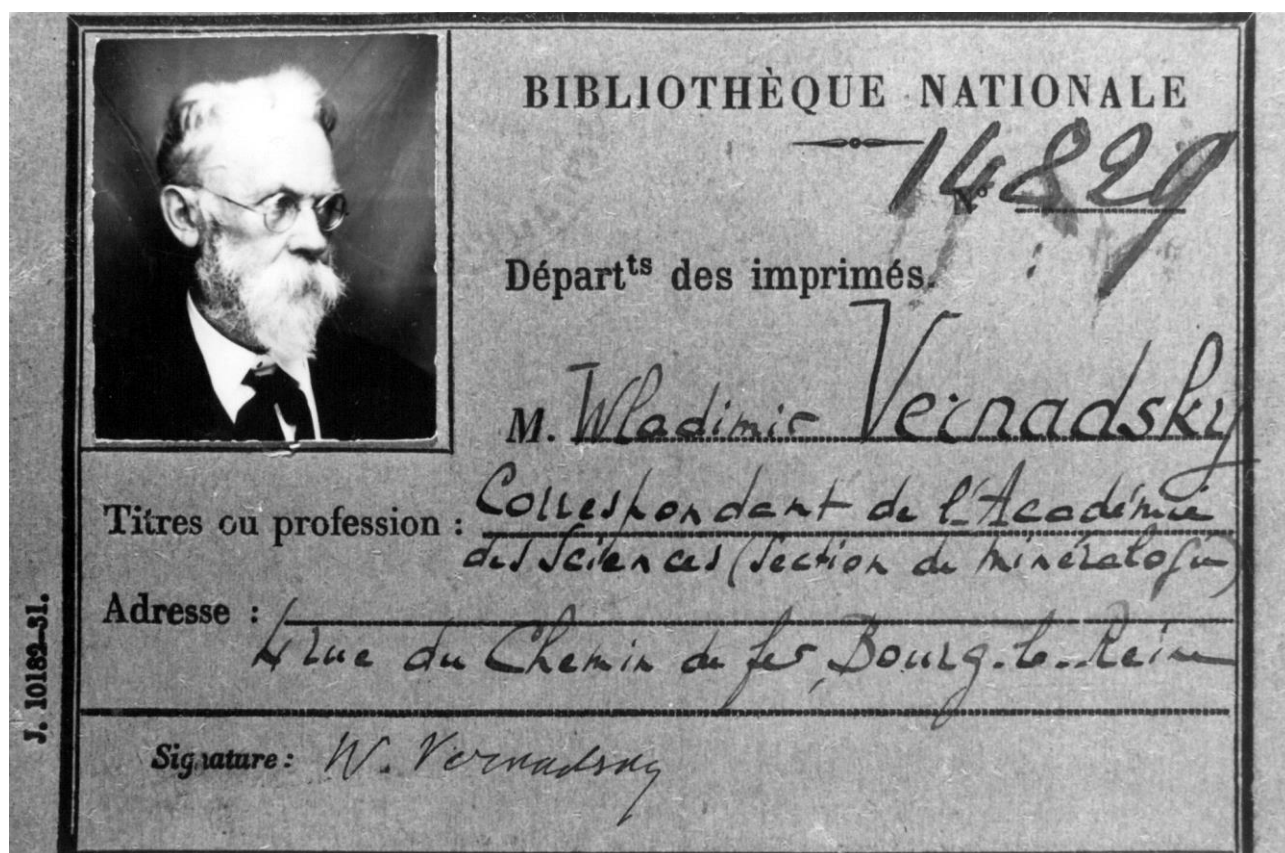 BIBLIOTHÈQUE NATIONALE
N° 14829
Départᵗˢ des imprimés.
M. Wladimir Vernadsky
Titres ou profession : Correspondant de l'Académie
des Sciences (Section de minéralogie)
Adresse :
4 rue du Chemin de fer, Bourg-la-Reine
Signature : W. Vernadsky
J. 10182-31.